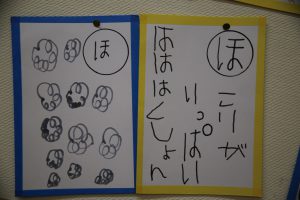 ほ
こりが
いっぱい
はははくしょん
ほ